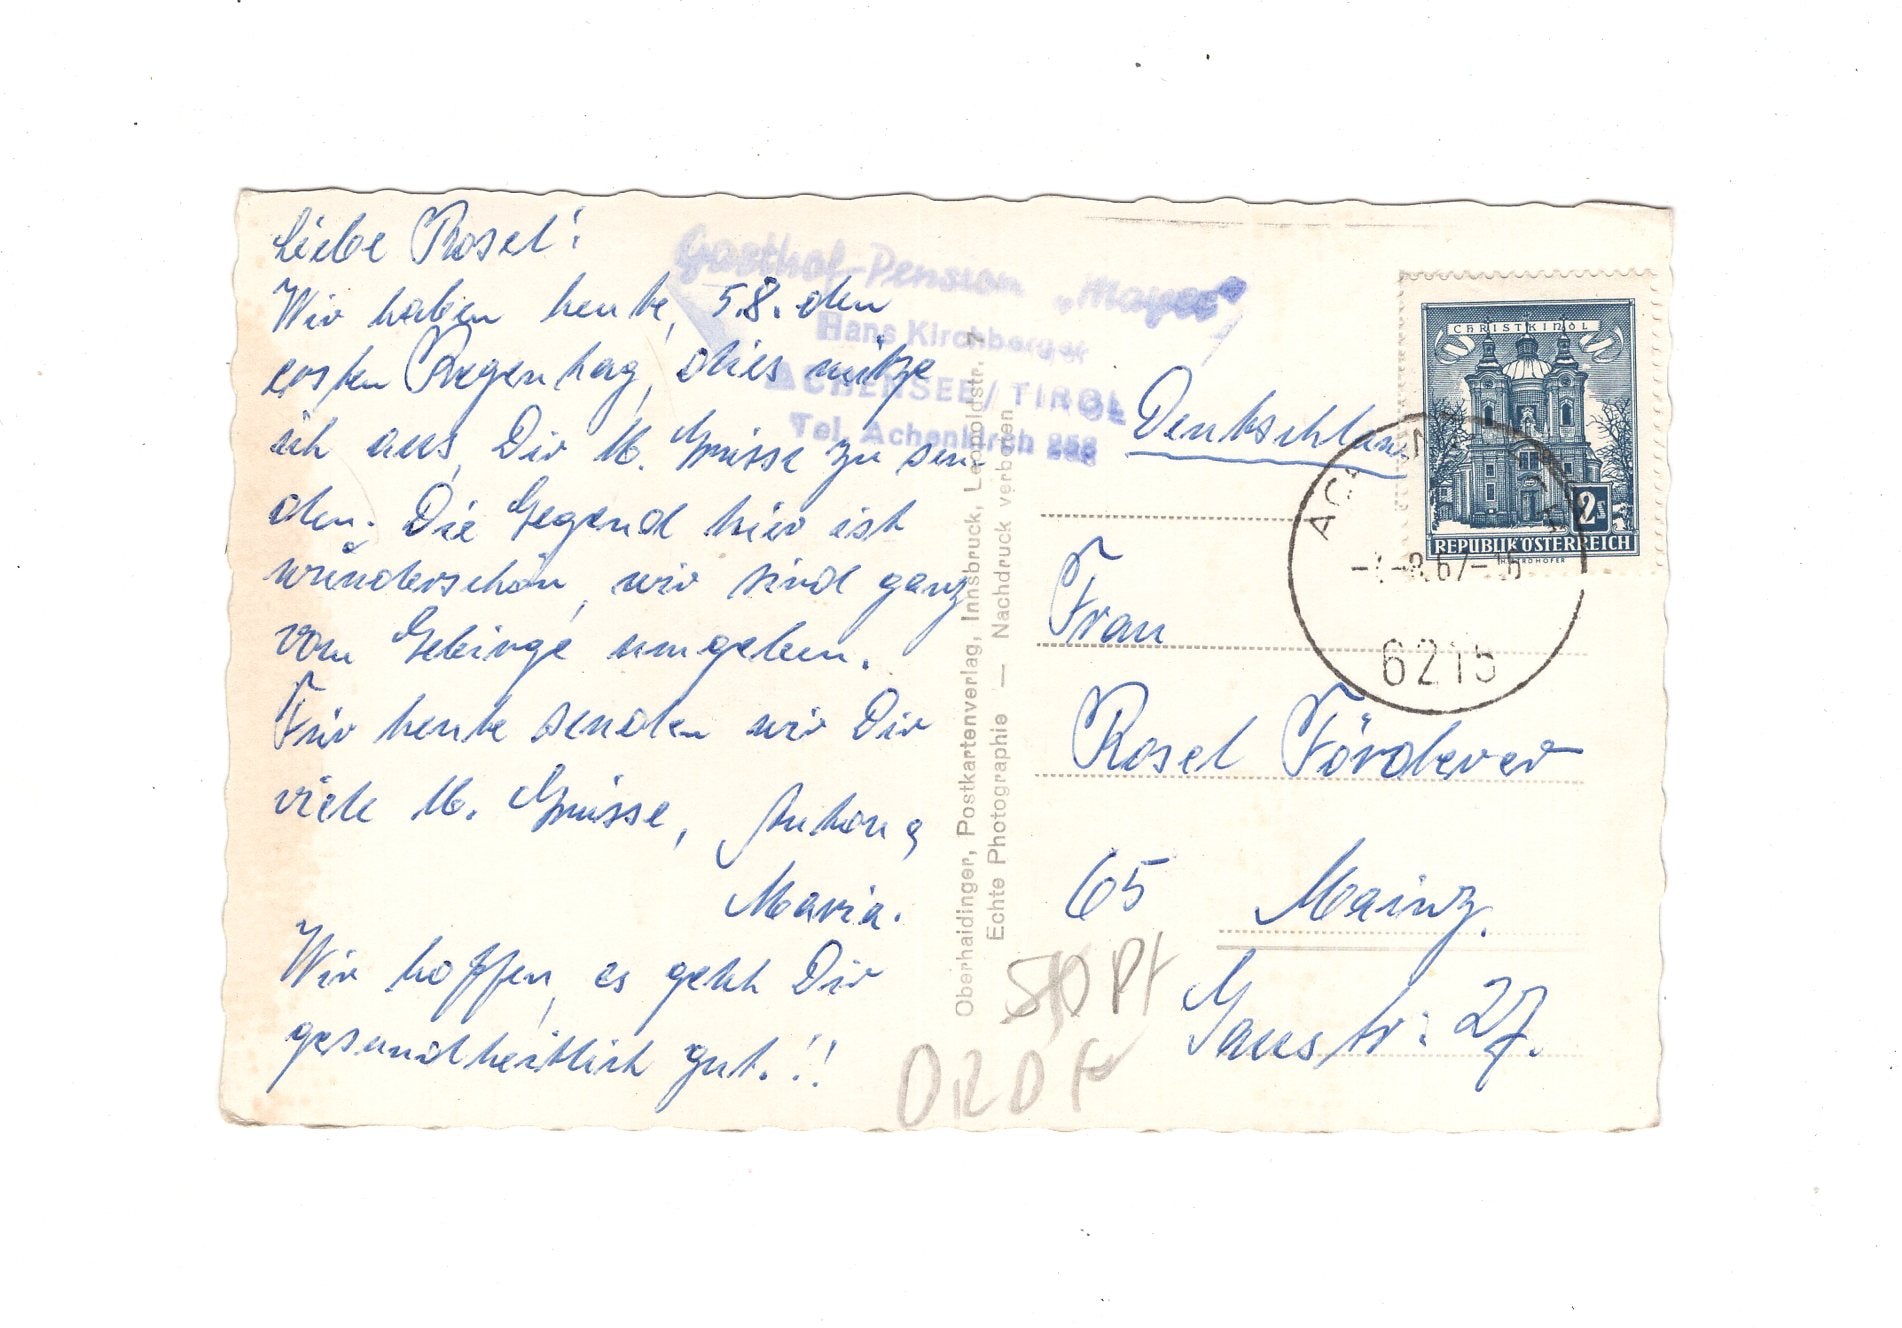 Liebe Rosel!
Wir haben heute, 5.8. den
ersten Regentag, dies nütze
ich aus, Dir lb. Grüsse zu sen-
den. Die Gegend hier ist
wunderschön, wir sind ganz
vom Gebirge umgeben.
Für heute senden wir Dir
viele lb. Grüsse, Anton u
Maria.
Wir hoffen, es geht Dir
gesundheitlich gut.!!
Gasthof-Pension „Mayer"
Hans Kirchberger
ACHENSEE / TIROL
Tel. Achenkirch 258
Oberhaidinger, Postkartenverlag, Innsbruck, Leopoldstr. 7
Echte Photographie — Nachdruck verboten
CHRISTKINDL
2s
REPUBLIK ÖSTERREICH
6215
Deutschland
Frau
Rosel Förderer
65 Mainz.
Gaustr: 27.